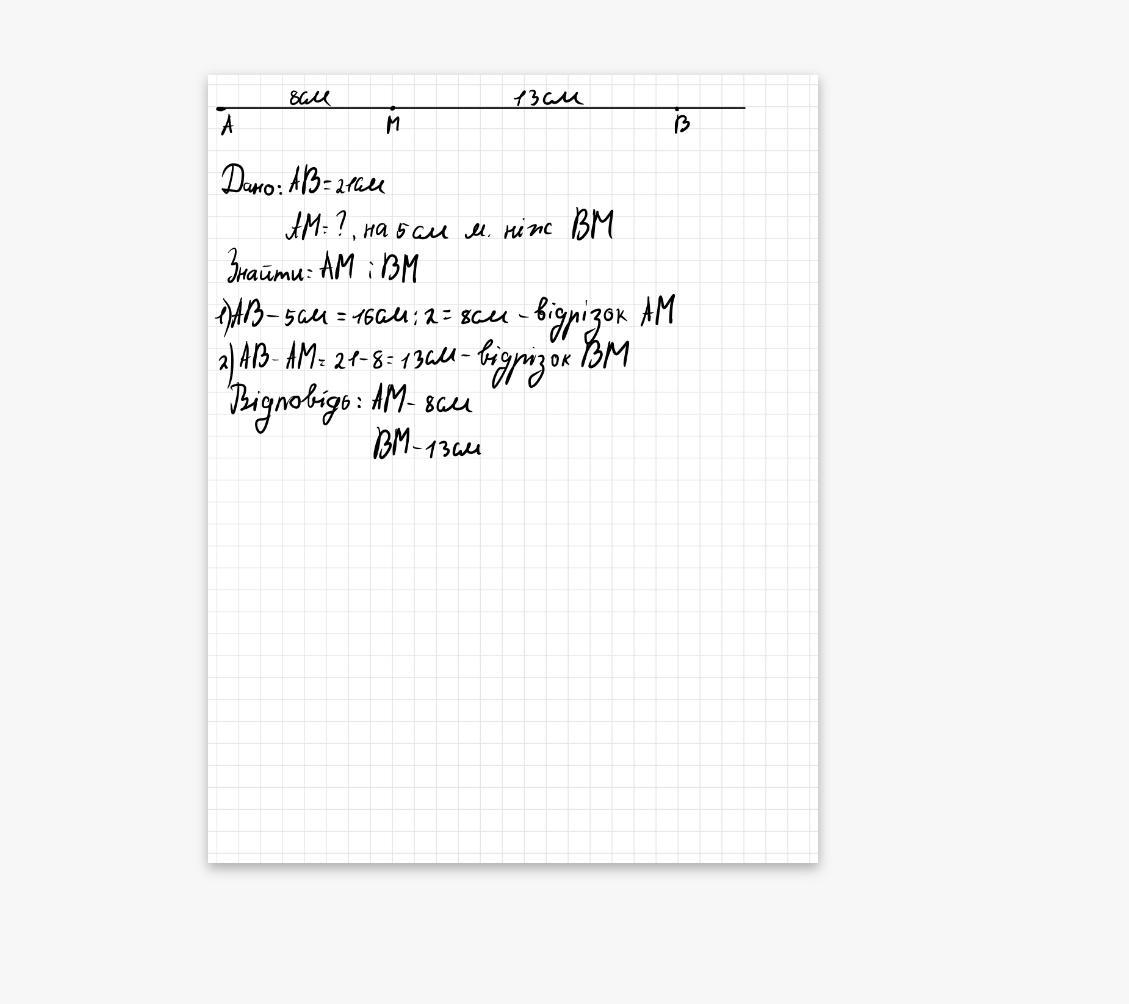 8см 13см
A M B
Дано: AB=21см
AM=?, на 5см м. ніж BM
Знайти: AM і BM
1) AB-5см=16см:2=8см - відрізок AM
2) AB-AM=21-8=13см - відрізок BM
Відповідь: AM-8см
BM-13см